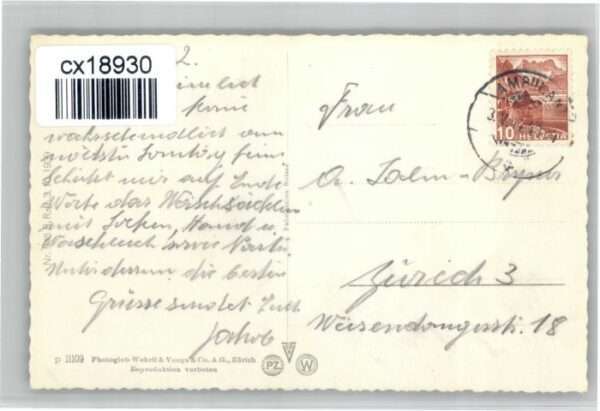 cx18930
2.
komme
wahrscheindlich am
nächsten Sonntag heim
Schikt mir auf Ende
Woche das Wäschsäcklein
mit Socken, Hemd u.
Waschtuch sowie
Unterdessen die besten
Grüsse sendet Euch
Jakob
Frau
A. Salm-Bryner
Zürich 3
Weisendongerstr. 18
10 HELVETIA
p 11109 Photoglob-Wehrli & Vouga & Co. A.G., Zürich
Reproduktion verboten
PZ V W